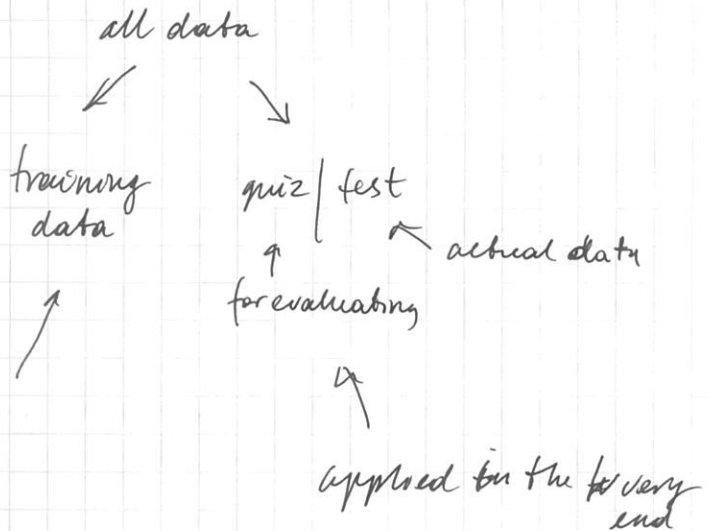 all data
training
data
quiz | test
actual data
for evaluating
applied in the very
end